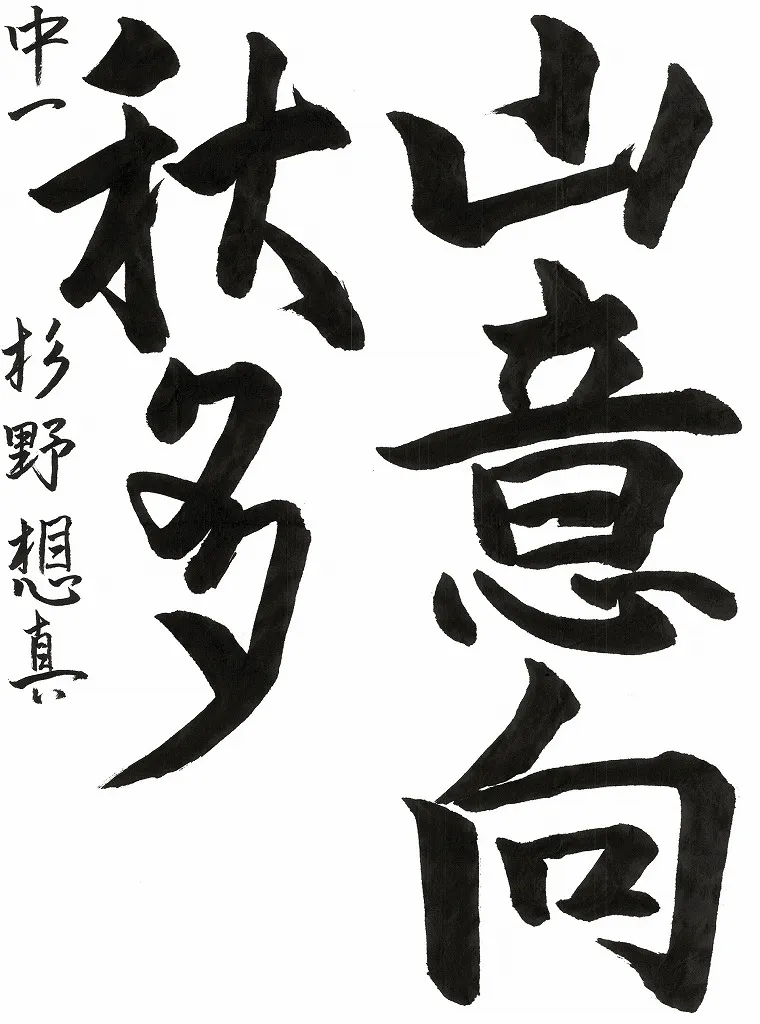 山意向
秋多
中一 杉野想真